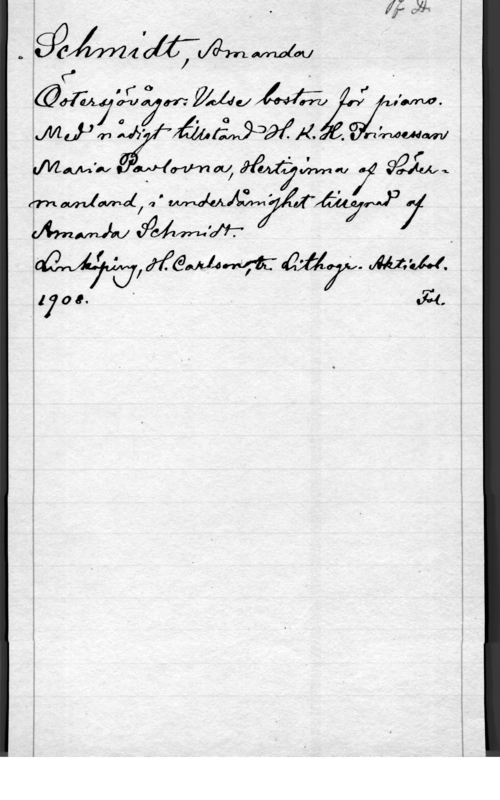 Pf. H.
Schmidt, Amanda
Östersjövågor: Valse boston för piano.
Med nådigt tillstånd H. K. H. Prinsessan
Maria Pavlovna, Hertiginna af Söder-
manland, i underdånighet tillegnad af
Amanda Schmidt.
Linköping, H. Carlson, tr. Lithogr. Aktiebol.
1908. Fol.